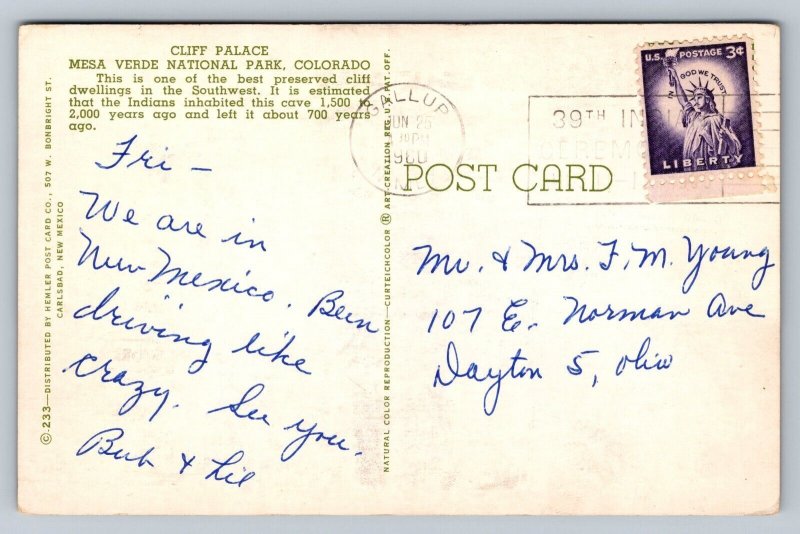 CLIFF PALACE
MESA VERDE NATIONAL PARK, COLORADO
This is one of the best preserved cliff
dwellings in the Southwest. It is estimated
that the Indians inhabited this cave 1,500 to
2,000 years ago and left it about 700 years
ago.
Fri —
We are in
New Mexico. Been
driving like
crazy. See you.
Bub & Lil
©.233—DISTRIBUTED BY HEMLER POST CARD CO., 507 W. BONBRIGHT ST.
CARLSBAD, NEW MEXICO
NATURAL COLOR REPRODUCTION—CURTEICHCOLOR ® ART-CREATION REG. U.S. PAT. OFF.
GALLUP
JUN 25
1960
N.M.
39TH IN
CEREM
POST CARD
U.S. POSTAGE 3¢
IN GOD WE TRUST
LIBERTY
Mr. & Mrs. F. M. Young
107 E. Norman Ave
Dayton 5, Ohio